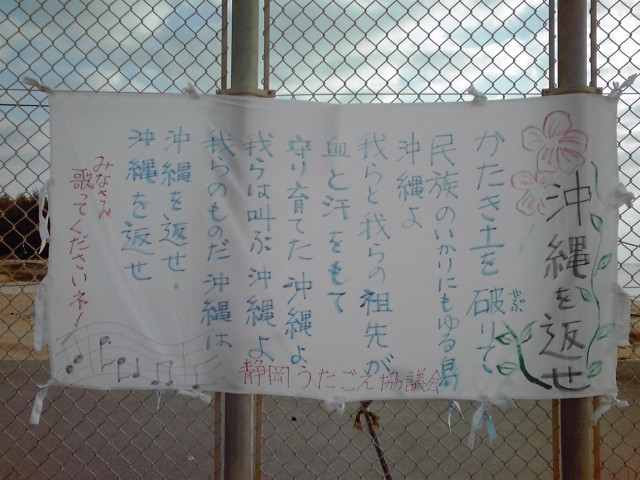 沖縄を返せ
かたき土を破りて
やぶ
民族のいかりにもゆる島
沖縄よ
我らと我らの祖先が
血と汗をもて
守り育てた沖縄よ
我らは叫ぶ沖縄よ
我らのものだ沖縄は
沖縄を返せ
沖縄を返せ
みなさん
歌ってくださいネー!
静岡うたごえ協議会